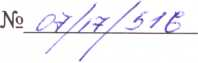 № 07/17/516